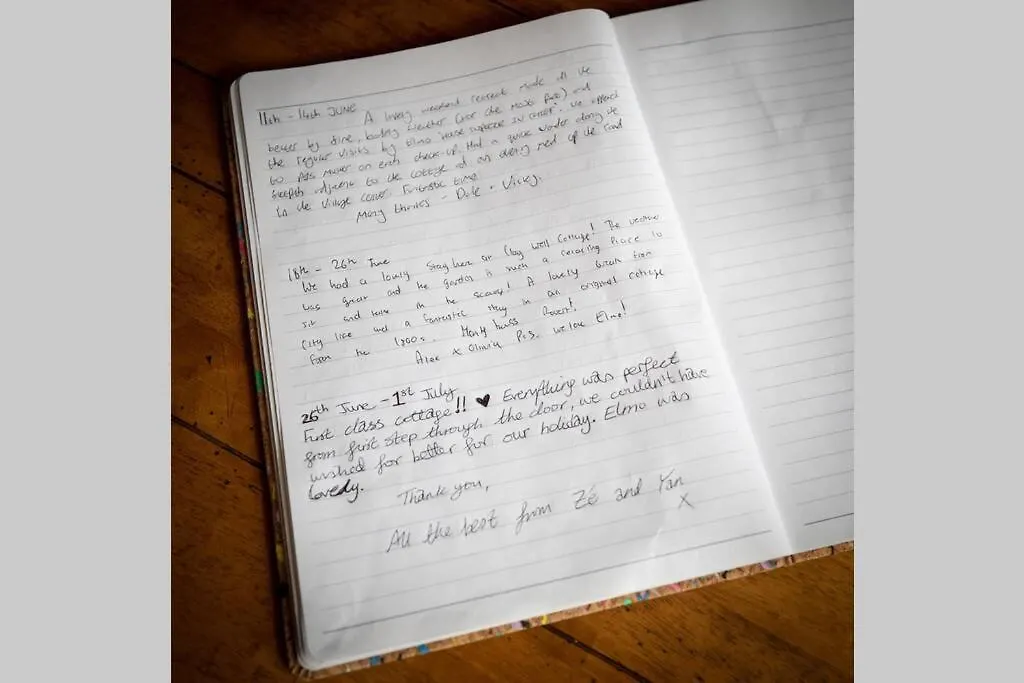 11th - 14th JUNE A lovely weekend retreat made all the
better by fine, boiling weather (for the most part) and
the regular visits by Elmo 'house inspector in chief'. We
to pass muster on each check-up. Had a quick wander along the
footpath adjacent to the cottage and an evening meal up the road
in the village centre. Fantastic time
Many thanks - Dale + Vicky.
18th - 26th June
We had a lovely stay here at Clay Well Cottage! The weather
was great and the garden is such a relaxing place to
sit and take in the scenery! A lovely break from
city life and a fantastic stay in an original cottage
from the 1800s. Many thanks Robert!
Alex x Olivia P.S. we love Elmo!
26th June - 1st July
First class cottage!! ♥ Everything was perfect
from first step through the door, we couldn't have
wished for better for our holiday. Elmo was
lovely.
Thank you,
All the best from Zé and Yan
X